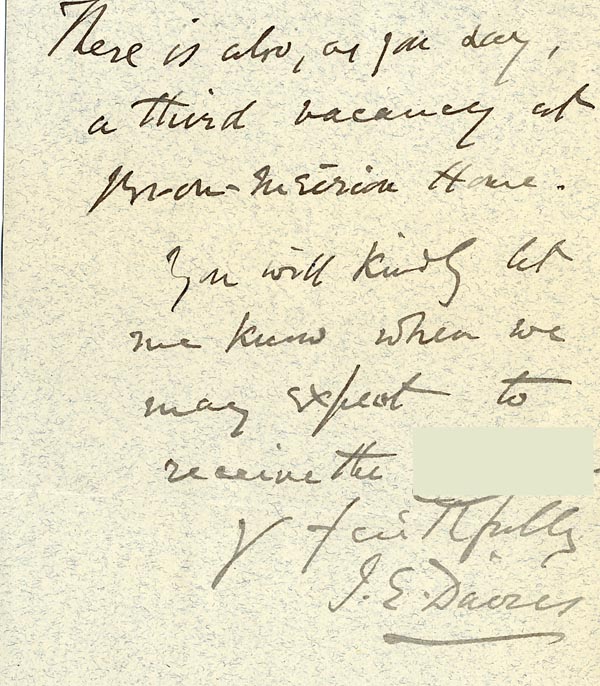 There is also, as you say,
a third vacancy at
Bron-Meirion Home.
You will kindly let
me know when we
may expect to
receive the
Y faithfully
J. E. Davies